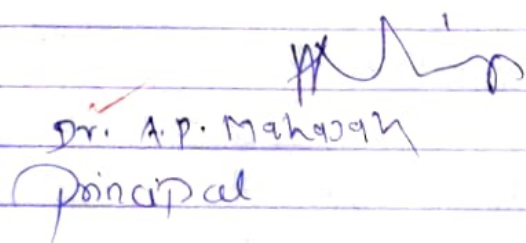 Dr. A.P. Mahajan
principal